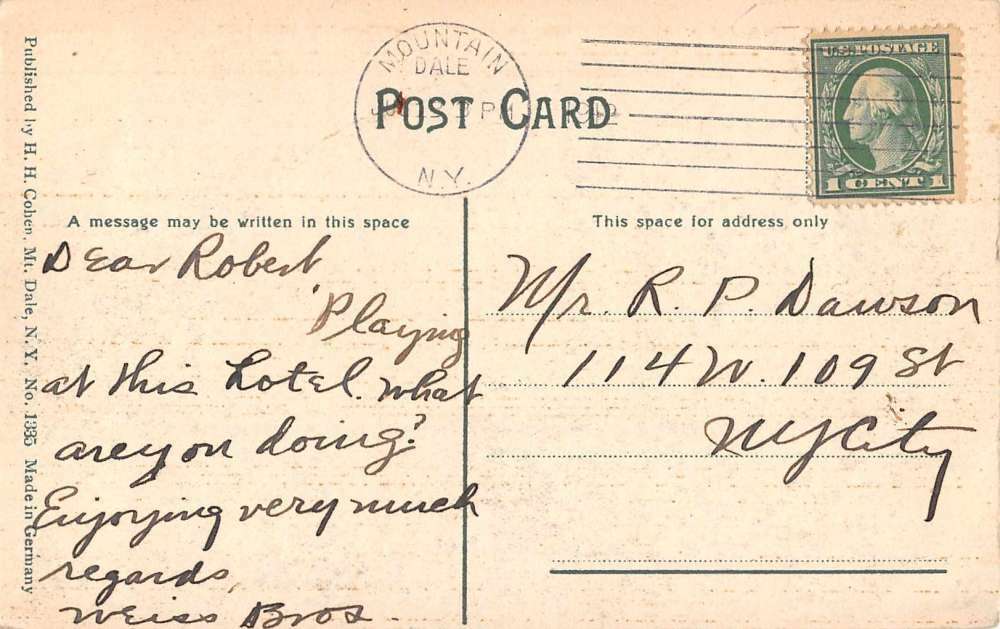 Published by H. H. Cohen, Mt. Dale, N. Y. No. 1335 Made in Germany
MOUNTAIN
DALE
N.Y.
POST CARD
U.S. POSTAGE
1 CENT 1
A message may be written in this space
Dear Robert
Playing
at this hotel. What
are you doing?
Enjoying very much
regards
Weiss Bros.
This space for address only
Mr. R. P. Dawson
114 W. 109 St
NY City